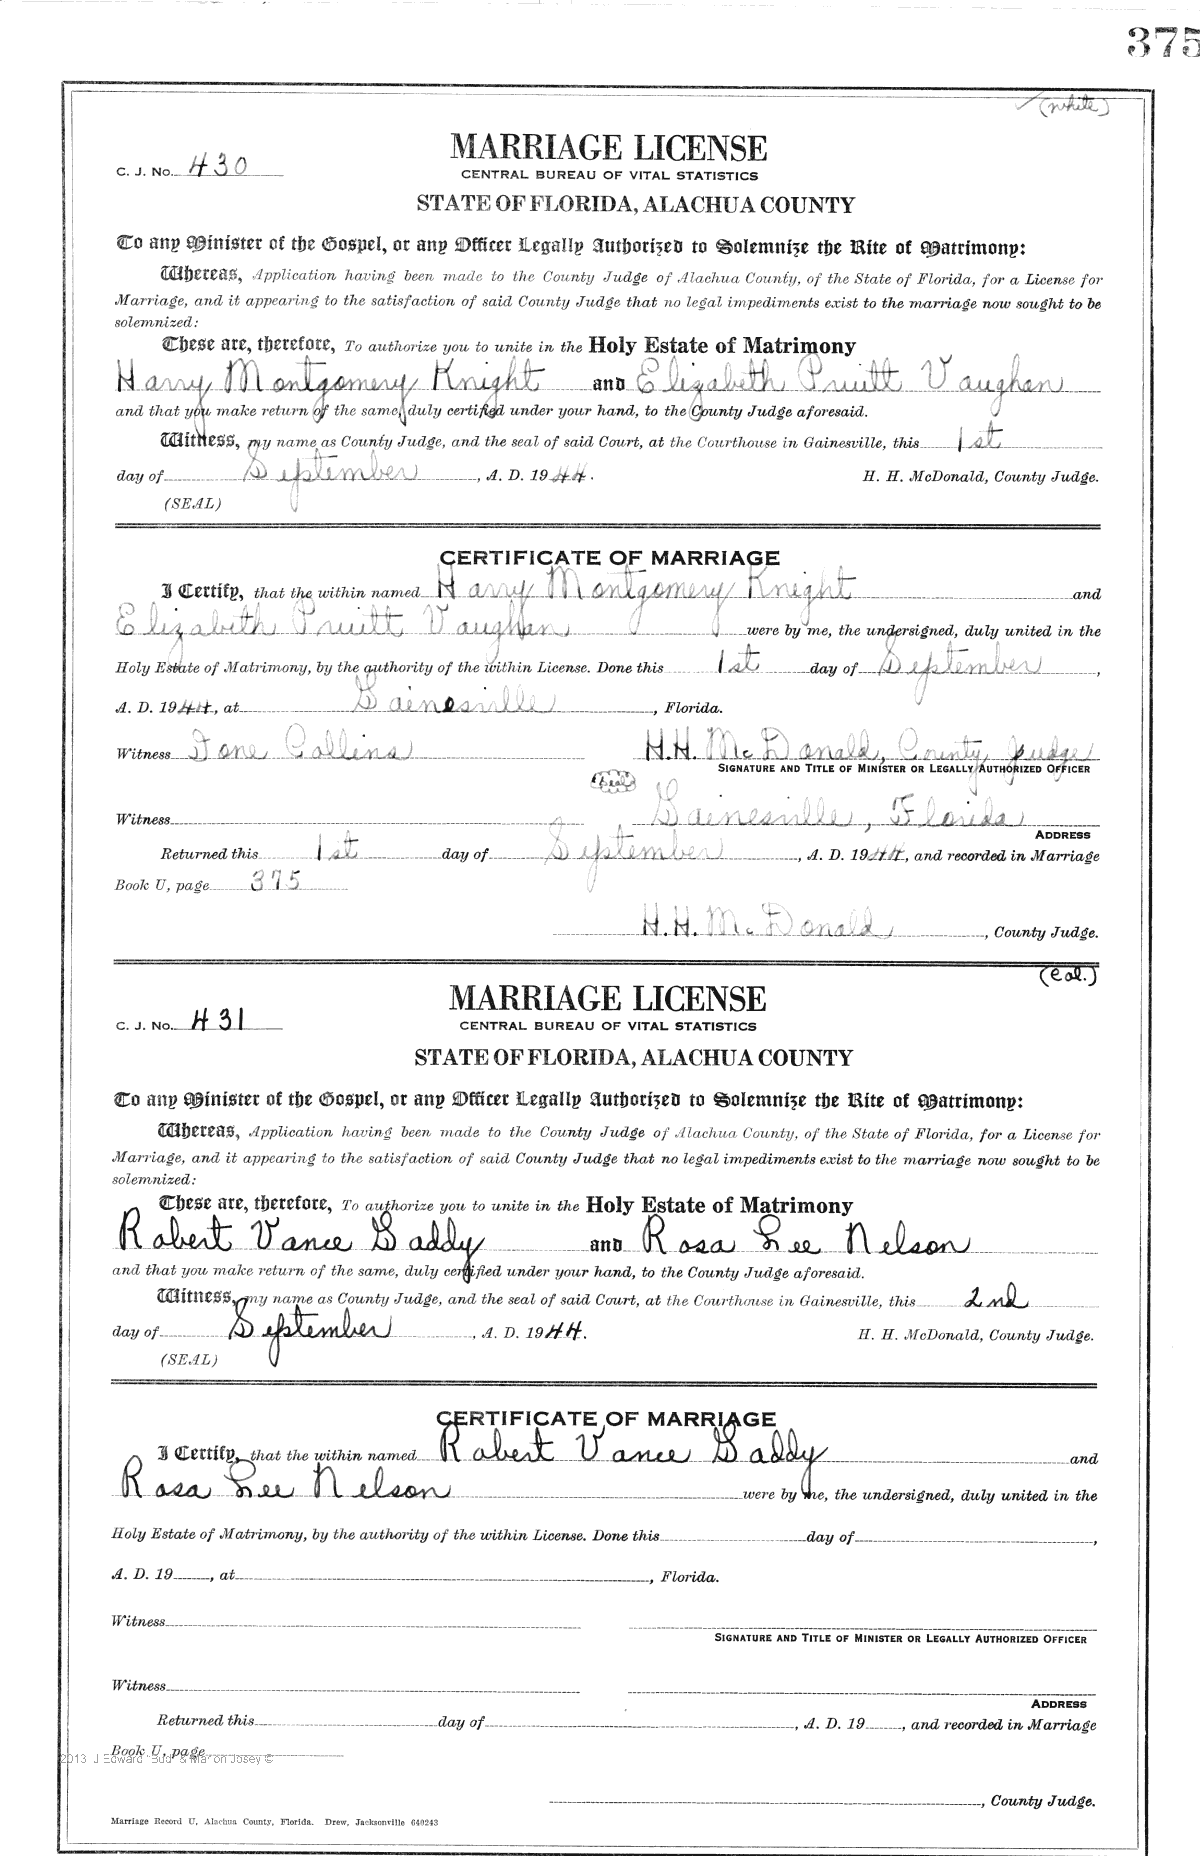 375
(white)
MARRIAGE LICENSE
C. J. No. 430
CENTRAL BUREAU OF VITAL STATISTICS
STATE OF FLORIDA, ALACHUA COUNTY
To any Minister of the Gospel, or any Officer Legally Authorized to Solemnize the Rite of Matrimony:
Whereas, Application having been made to the County Judge of Alachua County, of the State of Florida, for a License for
Marriage, and it appearing to the satisfaction of said County Judge that no legal impediments exist to the marriage now sought to be
solemnized:
These are, therefore, To authorize you to unite in the Holy Estate of Matrimony
Harry Montgomery Knight and Elizabeth Pruitt Vaughan
and that you make return of the same, duly certified under your hand, to the County Judge aforesaid.
Witness, my name as County Judge, and the seal of said Court, at the Courthouse in Gainesville, this 1st
day of September, A. D. 1944. H. H. McDonald, County Judge.
(SEAL)
CERTIFICATE OF MARRIAGE
I Certify, that the within named Harry Montgomery Knight and
Elizabeth Pruitt Vaughan were by me, the undersigned, duly united in the
Holy Estate of Matrimony, by the authority of the within License. Done this 1st day of September,
A. D. 1944, at Gainesville, Florida.
Witness Ione Collins H.H. McDonald, County Judge
SIGNATURE AND TITLE OF MINISTER OR LEGALLY AUTHORIZED OFFICER
(Seal)
Witness Gainesville, Florida
ADDRESS
Returned this 1st day of September, A. D. 1944, and recorded in Marriage
Book U, page 375
H.H. McDonald, County Judge.
(Col.)
MARRIAGE LICENSE
C. J. No. 431
CENTRAL BUREAU OF VITAL STATISTICS
STATE OF FLORIDA, ALACHUA COUNTY
To any Minister of the Gospel, or any Officer Legally Authorized to Solemnize the Rite of Matrimony:
Whereas, Application having been made to the County Judge of Alachua County, of the State of Florida, for a License for
Marriage, and it appearing to the satisfaction of said County Judge that no legal impediments exist to the marriage now sought to be
solemnized:
These are, therefore, To authorize you to unite in the Holy Estate of Matrimony
Robert Vance Gaddy and Rosa Lee Nelson
and that you make return of the same, duly certified under your hand, to the County Judge aforesaid.
Witness, my name as County Judge, and the seal of said Court, at the Courthouse in Gainesville, this 2nd
day of September, A. D. 1944. H. H. McDonald, County Judge.
(SEAL)
CERTIFICATE OF MARRIAGE
I Certify, that the within named Robert Vance Gaddy and
Rosa Lee Nelson were by me, the undersigned, duly united in the
Holy Estate of Matrimony, by the authority of the within License. Done this day of ,
A. D. 19 , at , Florida.
Witness
SIGNATURE AND TITLE OF MINISTER OR LEGALLY AUTHORIZED OFFICER
Witness
ADDRESS
Returned this day of , A. D. 19 , and recorded in Marriage
Book U, page
2013 J Edward "Bud" & Marion Josey ©
, County Judge.
Marriage Record U, Alachua County, Florida. Drew, Jacksonville 640243